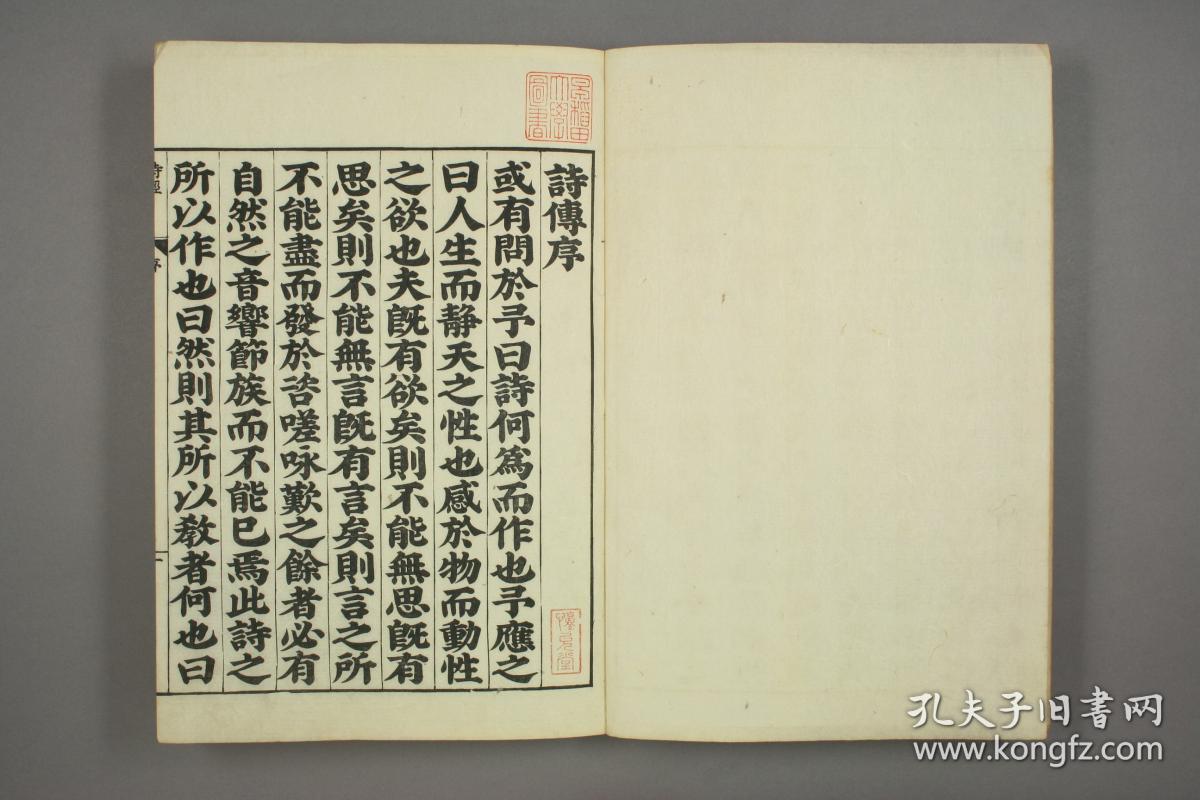 詩傳序
或有問於予曰詩何爲而作也予應之
曰人生而静天之性也感於物而動性
之欲也夫旣有欲矣則不能無思旣有
思矣則不能無言旣有言矣則言之所
不能盡而發於咨嗟咏歎之餘者必有
自然之音響節族而不能已焉此詩之
所以作也曰然則其所以教者何也曰
詩經
序
早稲田
大學
圖書
孔夫子旧書网
www.kongfz.com